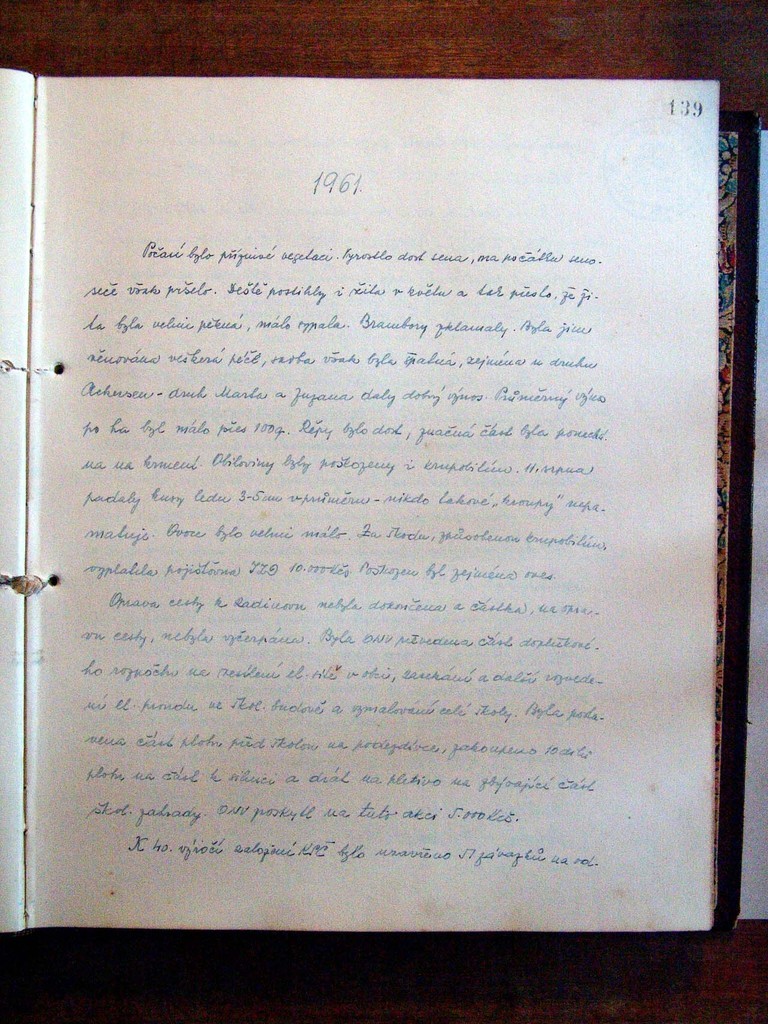 139
1961.
Počasí bylo příznivé vegetaci. Vyrostlo dost sena, na počátku seno-
seče však pršelo. Deště postihly i žita v květu a tak přesto, že ži-
ta byla velmi pěkná, málo sypala. Brambory zklamaly. Byla jim
věnována veškerá péče, sadba však byla špatná, zejména u druhu
Ackersen - druh Marta a Zuzana daly dobrý výnos. Průměrný výnos
po ha byl málo přes 100q. Řepy bylo dost, značná část byla ponechá-
na na krmení. Obiloviny byly poškozeny i krupobitím. 11. srpna
padaly kusy ledu 3-5 cm v průměru - nikdo takové „kroupy" nepa-
matuje. Ovoce bylo velmi málo. Za škodu, způsobenou krupobitím,
vyplatila pojišťovna JZD 10.000 Kčs. Poškozen byl zejména oves.
Oprava cesty k Radinovu nebyla dokončena a částka, na opra-
vu cesty, nebyla vyčerpána. Byla ONV převedena část doplňkové-
ho rozpočtu na zesílení el. sítě v obci, zasekání a další rozvede-
ní el. proudu ve škol. budově a vymalování celé školy. Byla posta-
vena část plotu před školou na podezdívce, zakoupeno 10 dílů
plotu na část k silnici a drát na pletivo na zbývající část
škol. zahrady. ONV poskytl na tuto akci 5.000 Kčs.
K 40. výročí založení KSČ bylo uzavřeno 51 závazků na od-